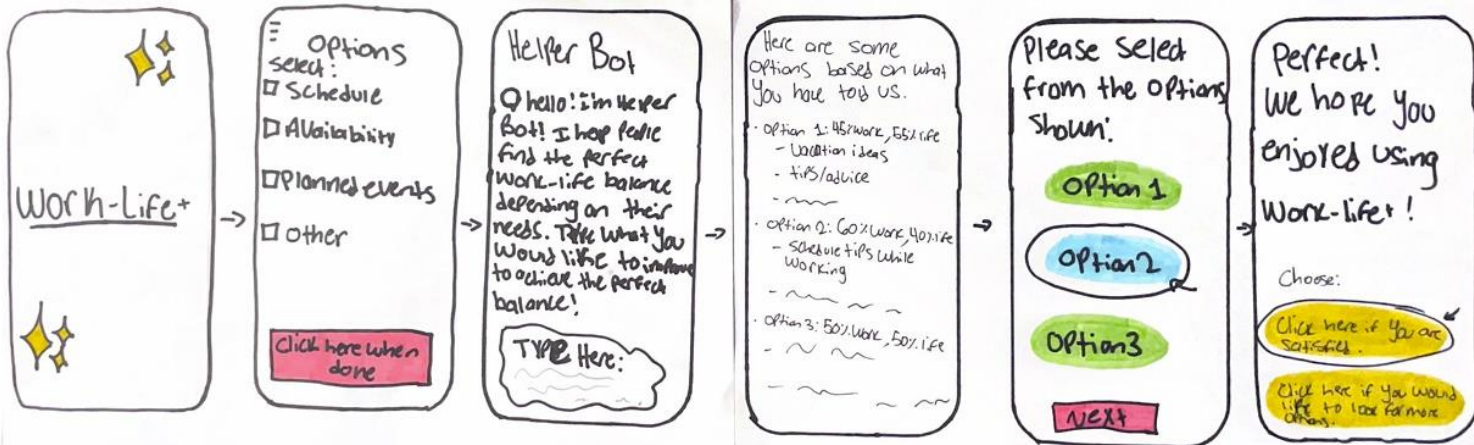 Work-Life+
Options
select:
Schedule
Availability
Planned events
Other
Click here when
done
Helper Bot
hello! I'm Helper
Bot! I help people
find the perfect
work-life balance
depending on their
needs. Type what you
would like to improve
to achieve the perfect
balance!
TYPE Here:
Here are some
options based on what
you have told us.
· Option 1: 45% work, 55% life
- Vacation ideas
- tips/advice
· Option 2: 60% work, 40% life
- Schedule tips while
working
· Option 3: 50% work, 50% life
Please Select
from the options
shown:
Option 1
Option 2
Option 3
Next
Perfect!
We hope you
enjoyed using
Work-life+!
Choose:
Click here if you are
satisfied.
Click here if you would
like to look for more
options.